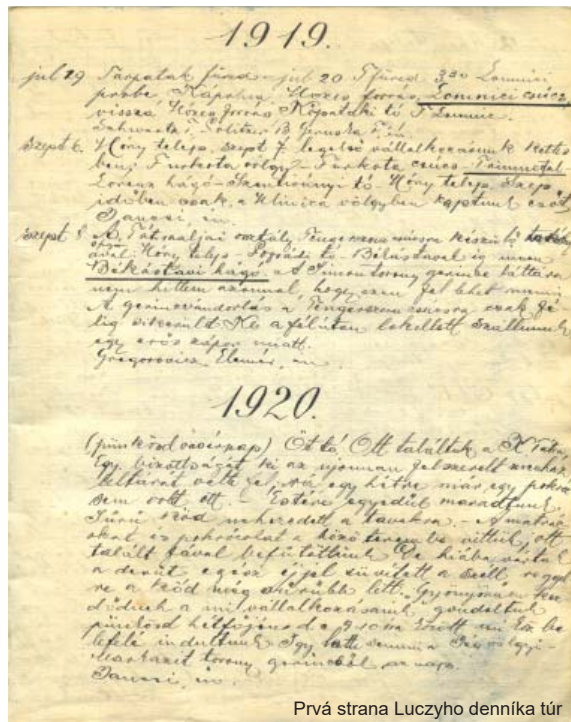 1919.
jul 19 Tarpatak füred - jul 20 T füred 3 30 Lomnici
próbe Kápolna, Mózes forrás, Lomnici csúcs,
vissza Mózes forrás Kőpataki tó T Lomnic.
B
Szept 6. Hóry telep, szept 7. legelső vállalkozásunk
Furkota völgy - Furkota csúcs -
Lorenz hágó - Szentiványi tó - Hóry telep. Szép
időben csak a Klinica völgyben kaptunk esőt
Danczi, én.
szept 8. A Tátraaljai osztály Tengerszemcsúcsra készülő
ával. Hóry telep - Poprádi tó - Békástavaig
Békástavi hágó. - A Simon torony gerincbe láttára
nem hittem azonnal, hogy ezen fel lehet menni
A gerincvándorlás a Tengerszemcsúcsra csak fé
lig sikerült Ki a félúton le kellett szállnunk
egy erős zápor miatt.
Gregorovicz Elemér, én
1920.
(pünkösd vasárnap) Öt tó. Ott találtuk a
Egy. bizottságát ki az ujonnan felszerelt menház
leltárát vette fel. egy hétre már egy pokróc
sem volt ott. - Estére egyedül maradtunk.
Sűrű köd nehezedett a tavakra. - A matrac
okat és pokrócokat a közös terembe vittük, ott
talált fával befűtöttünk De hiába vártuk
a derüt egész éjjel süvített a szél, reggel
re a köd még sűrűbb lett. Gyönyörűen kez
dődnek a mi vállalkozásaink gondoltuk
pünkösd hétfőjén d. e. 9-10 óra között mi
lefelé indultunk Így lett semmi a
Markazit torony gerincből az nap.
Danczi, én.
Prvá strana Luczyho denníka túr